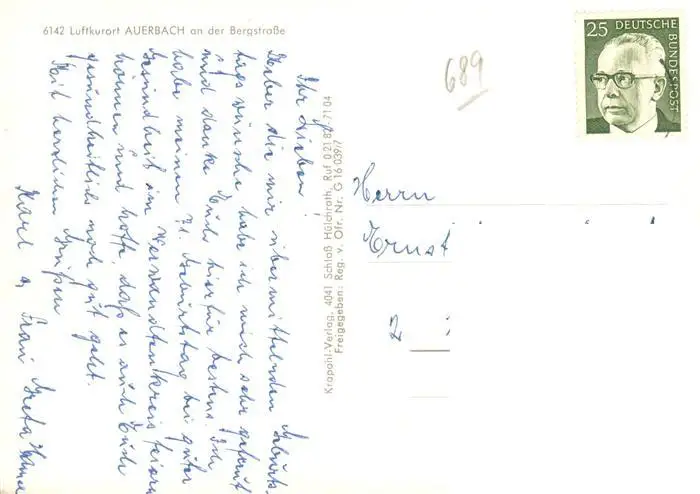 6142 Luftkurort AUERBACH an der Bergstraße
25 DEUTSCHE
BUNDESPOST
689
Ihr Lieben!
Über die mir übermittelten Geburts-
tagswünsche habe ich mich sehr gefreut
und danke Euch hierfür bestens. Ich
habe meinen 71. Geburtstag bei guter
Gesundheit im Verwandtenkreis feiern
können und hoffe, daß es auch Euch
gesundheitlich noch gut geht.
Mit herzlichen Grüßen
Karl u. Frau Greta
Krapohl-Verlag, 4041 Schloß Hülchrath, Ruf 0 21 82-71 04
Freigegeben: Reg. v. Ofr. Nr. G 16 039/7
Herrn
Ernst